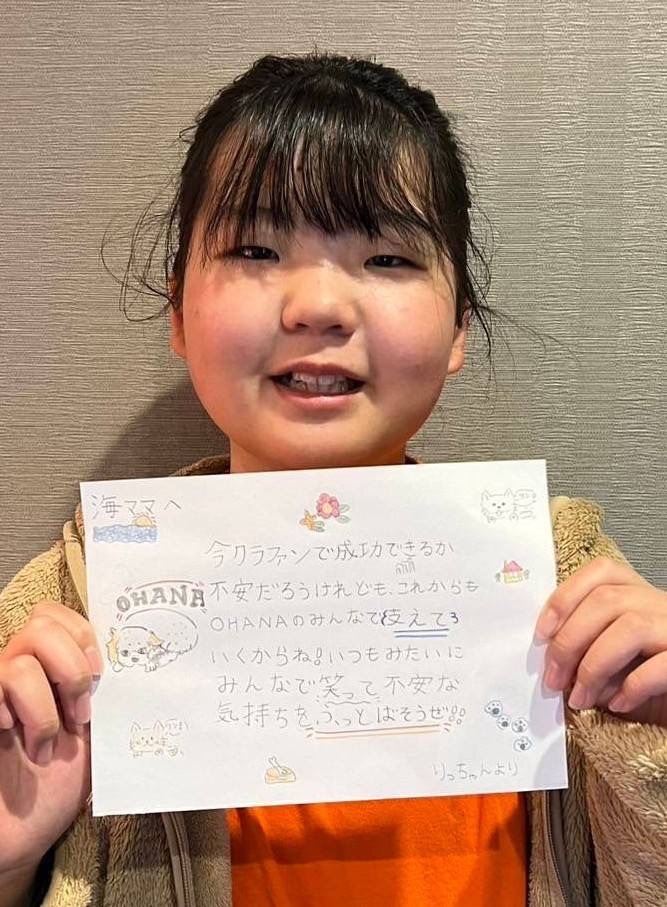 海ママへ
今クラファンで成功できるか
OHANA
不安だろうけれども、これからも
OHANAのみんなで支えて
いくからね!いつもみたいに
みんなで笑って不安な
気持ちをふっとばそうぜ!!
りっちゃんより